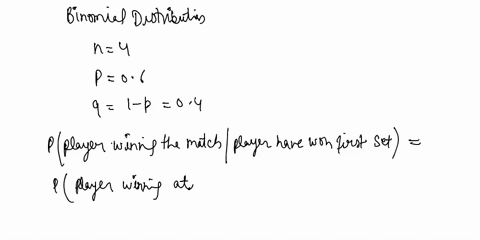 Binomial Distribution
n=4
p=0.6
q = 1-p = 0.4
P(player winning the match/player have won first set) =
P(player winning at